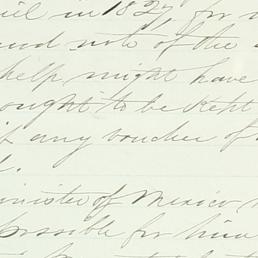 in 1827, for
and note of the
help might have
ought to be kept
any voucher of
Minister of Mexico
possible for him